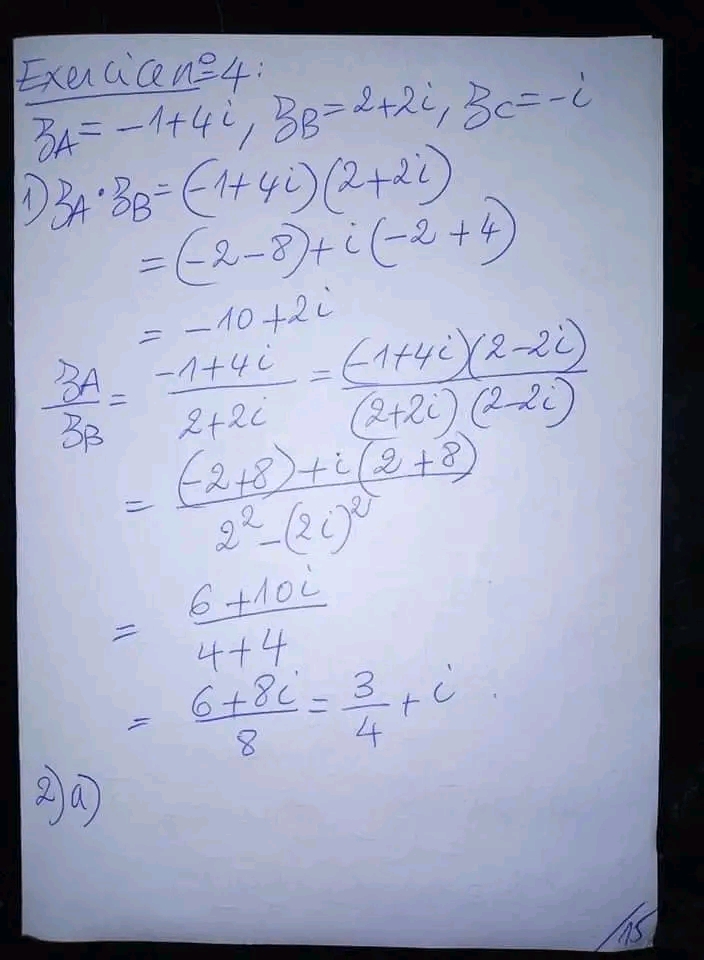 Exercice n°4:
zA = -1+4i, zB = 2+2i, zC = -i
1) zA·zB = (-1+4i)(2+2i)
= (-2-8)+i(-2+4)
= -10+2i
zA/zB = (-1+4i)/(2+2i) = (-1+4i)(2-2i)/(2+2i)(2-2i)
= (-2+8)+i(2+8)/2²-(2i)²
= 6+10i/4+4
= 6+8i/8 = 3/4 + i.
2) a)
/15